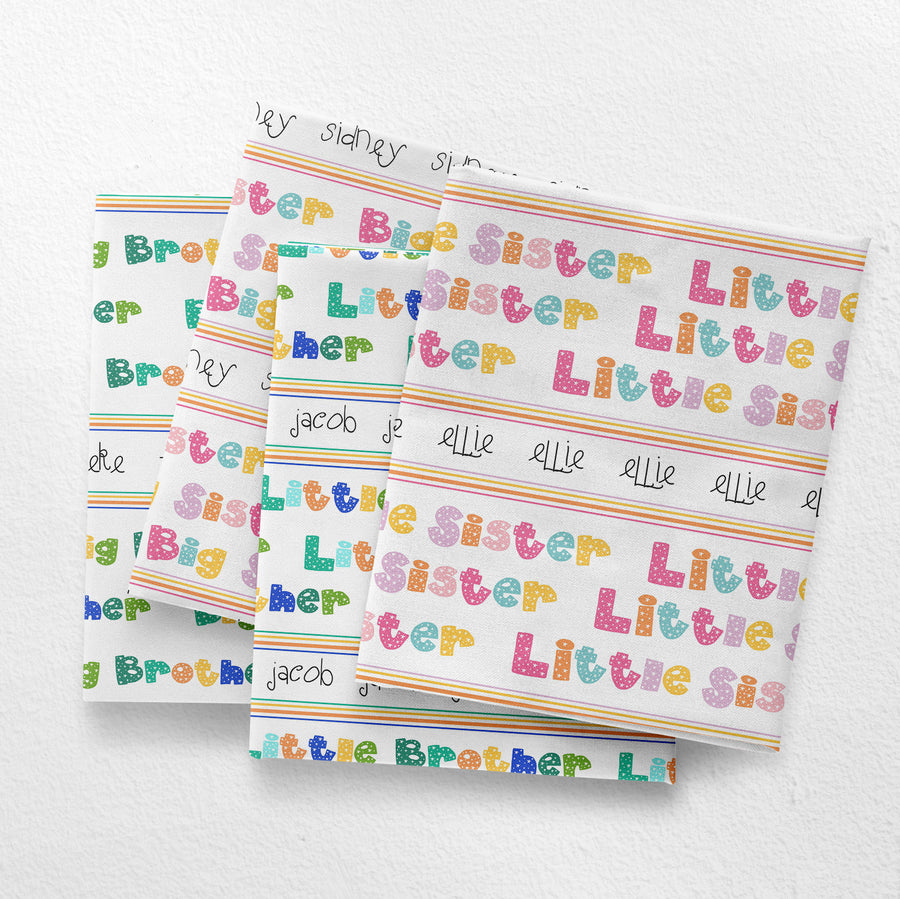 ey sidney sidney
ster Big
Big
ney
ster
Sis
Big
g Brothe
er
Bro
eke
g
her
g Brothe
Litt
ther
jacob
Little
Lit
her
jacob
ittle Brother Lit
e Sister Little
Sister Little
ter Little Sist
ellie ellie ellie ellie
e Sister Little
Sister Little S
ter Little Sis